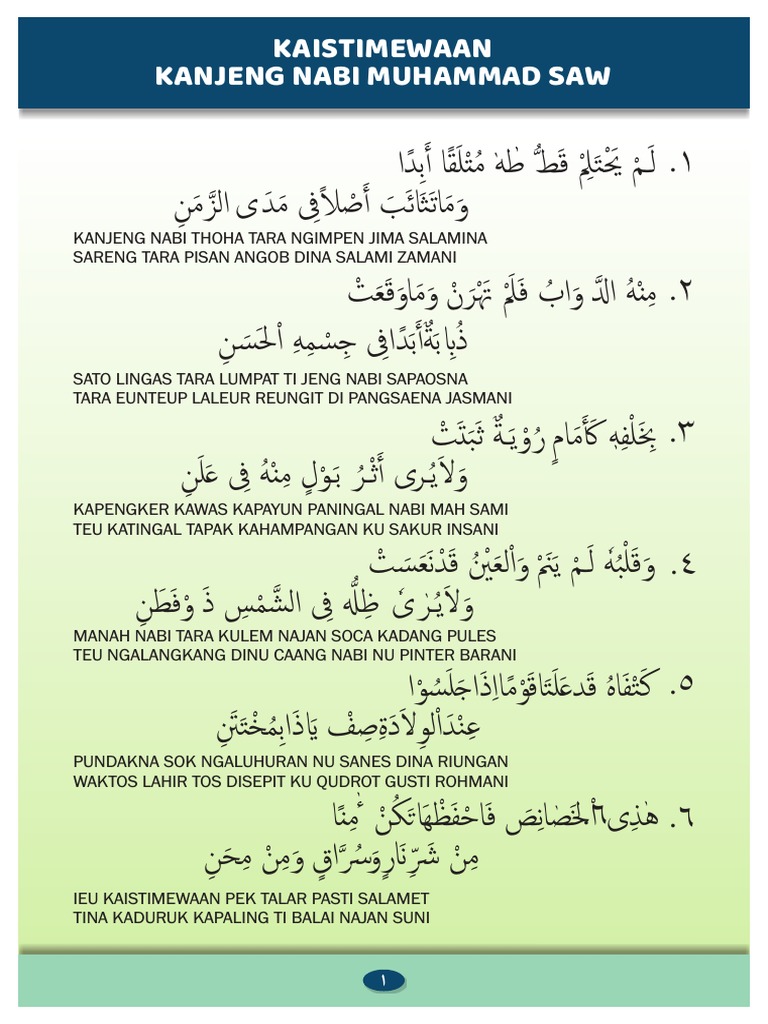 KAISTIMEWAAN
KANJENG NABI MUHAMMAD SAW
١. لَمْ يَحْتَلِمْ قَطُّ طٰهٰ مُتْلَقًا أَبِدًا
وَمَاتَثَائَبَ أَصْلاًفِى مَدَى الزَّمَنِ
KANJENG NABI THOHA TARA NGIMPEN JIMA SALAMINA
SARENG TARA PISAN ANGOB DINA SALAMI ZAMANI
٢. مِنْهُ الدَّ وَابُ فَلَمْ تَهْرَنْ وَمَاوَقَعَتْ
ذُبِابَةٌأَبَدًافِى جِسْمِهِ اْلحَسَنِ
SATO LINGAS TARA LUMPAT TI JENG NABI SAPAOSNA
TARA EUNTEUP LALEUR REUNGIT DI PANGSAENA JASMANI
٣. بِخَلْفِهٖ كَأَمَامٍ رُوْيَةٌ ثَبَتَتْ
وَلاَيُرى أَثْرُ بَوْلٍ مِنْهُ فِى عَلَنِ
KAPENGKER KAWAS KAPAYUN PANINGAL NABI MAH SAMI
TEU KATINGAL TAPAK KAHAMPANGAN KU SAKUR INSANI
٤. وَقَلْبُهٗ لَمْ يَنَمْ وَاْلعَيْنُ قَدْنَعَسَتْ
وَلاَيُرٰىٗ ظِلُّه فِى الشَّمْسِ ذَ وْفَطَنِ
MANAH NABI TARA KULEM NAJAN SOCA KADANG PULES
TEU NGALANGKANG DINU CAANG NABI NU PINTER BARANI
٥. كَتْفَاهُ قَدعَلَتَاقَوْمًااِذَاجَلَسُوْا
عِنْدَاْلوِلاَدَةِصِفْ يَاذَابِمُخْتَتَنِ
PUNDAKNA SOK NGALUHURAN NU SANES DINA RIUNGAN
WAKTOS LAHIR TOS DISEPIT KU QUDROT GUSTI ROHMANI
٦. هٰذِى اْلخَصٰانِصَ فَاحْفَظْهَاتَكُنْ ءٰمِنًا
مِنْ شَرِّنَارٍوَسُرَّاقٍ وَمِنْ مِحَنِ
IEU KAISTIMEWAAN PEK TALAR PASTI SALAMET
TINA KADURUK KAPALING TI BALAI NAJAN SUNI
١